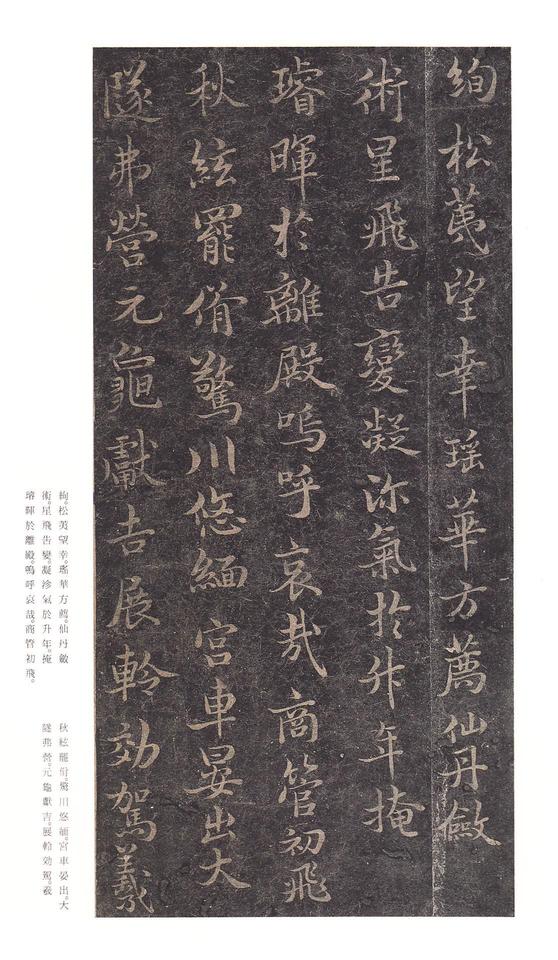 絢松荑望幸瑶華方薦仙丹斂
術星飛告變凝沴氣於升年掩
璿暉於離殿嗚呼哀哉商管初飛
秋絃罷佾驚川悠緬宮車晏出大
隧弗營元龜獻吉展軨効駕羲
絢。松荑望幸。瑶華方薦。仙丹斂
術。星飛告變。凝沴氣於升年。掩
璿暉於離殿。嗚呼哀哉。商管初飛。
秋絃罷佾。驚川悠緬。宮車晏出。大
隧弗營。元龜獻吉。展軨効駕。羲